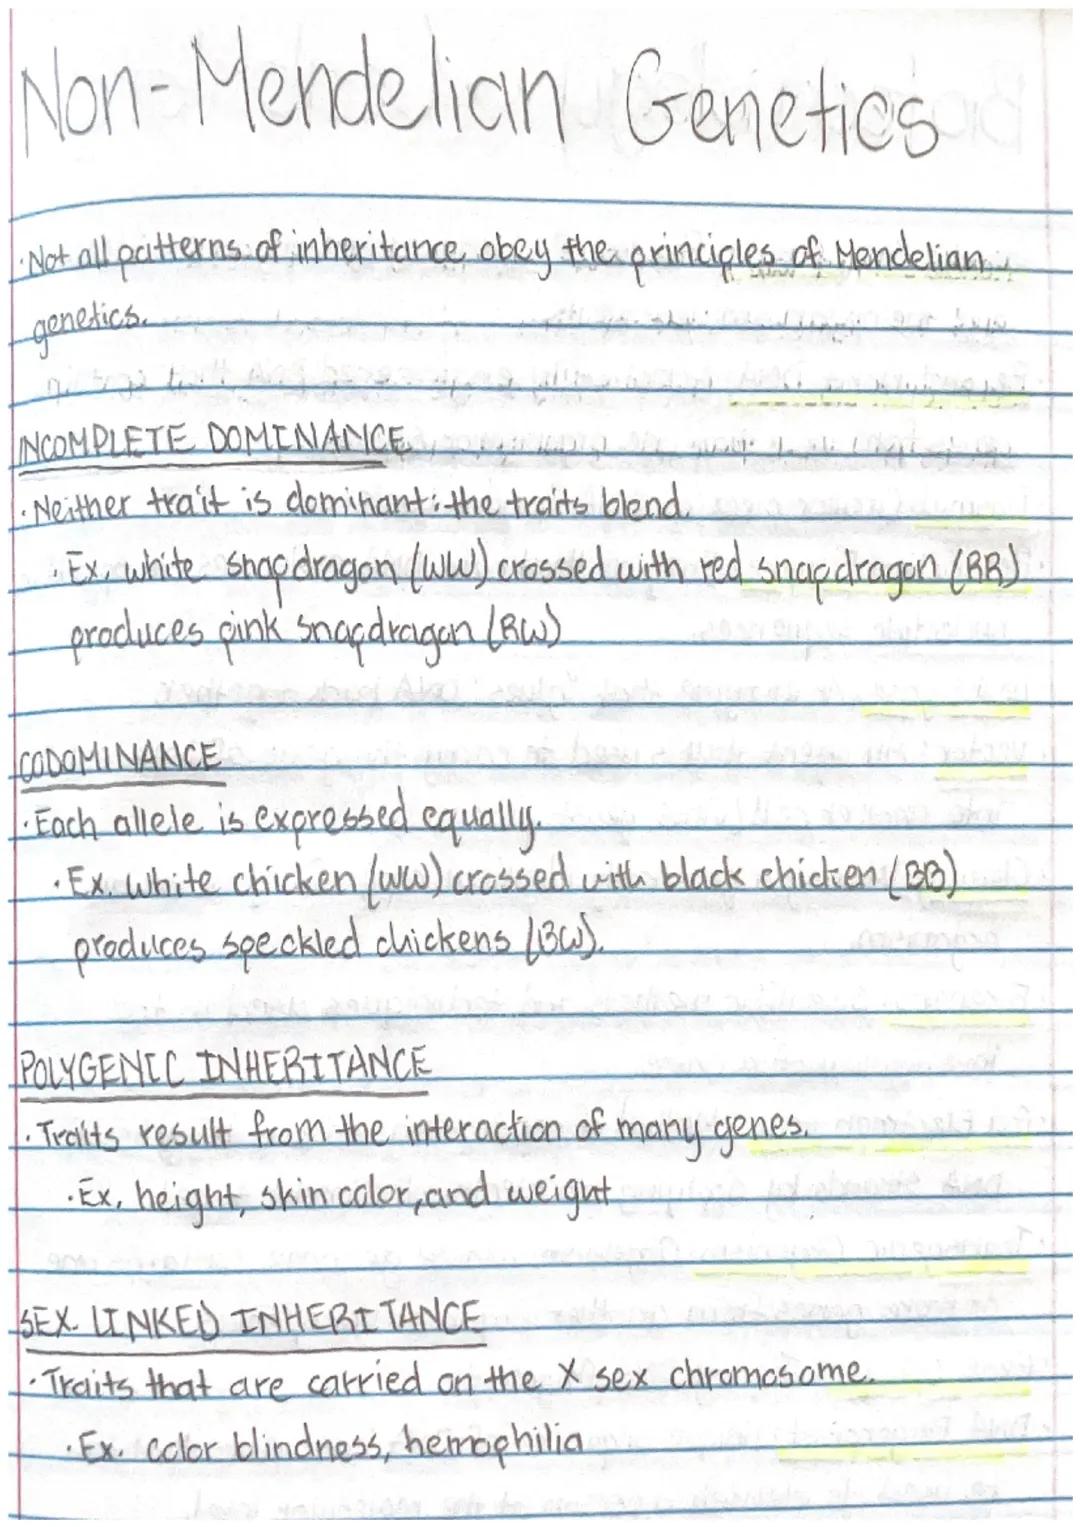 Non-Mendelian Genetics
·Not all patterns of inheritance obey the principles of Mendelian
genetics.
INCOMPLETE DOMINANCE
·Neither trait is dominant; the traits blend.
·Ex. white snapdragon (WW) crossed with red snapdragon (RR)
produces pink snapdragon (RW)
CODOMINANCE
·Each allele is expressed equally.
·Ex. white chicken (WW) crossed with black chicken (BB)
produces speckled chickens (BW).
POLYGENIC INHERITANCE
·Traits result from the interaction of many genes.
·Ex. height, skin color, and weight
SEX LINKED INHERITANCE
·Traits that are carried on the X sex chromosome.
·Ex. color blindness, hemophilia